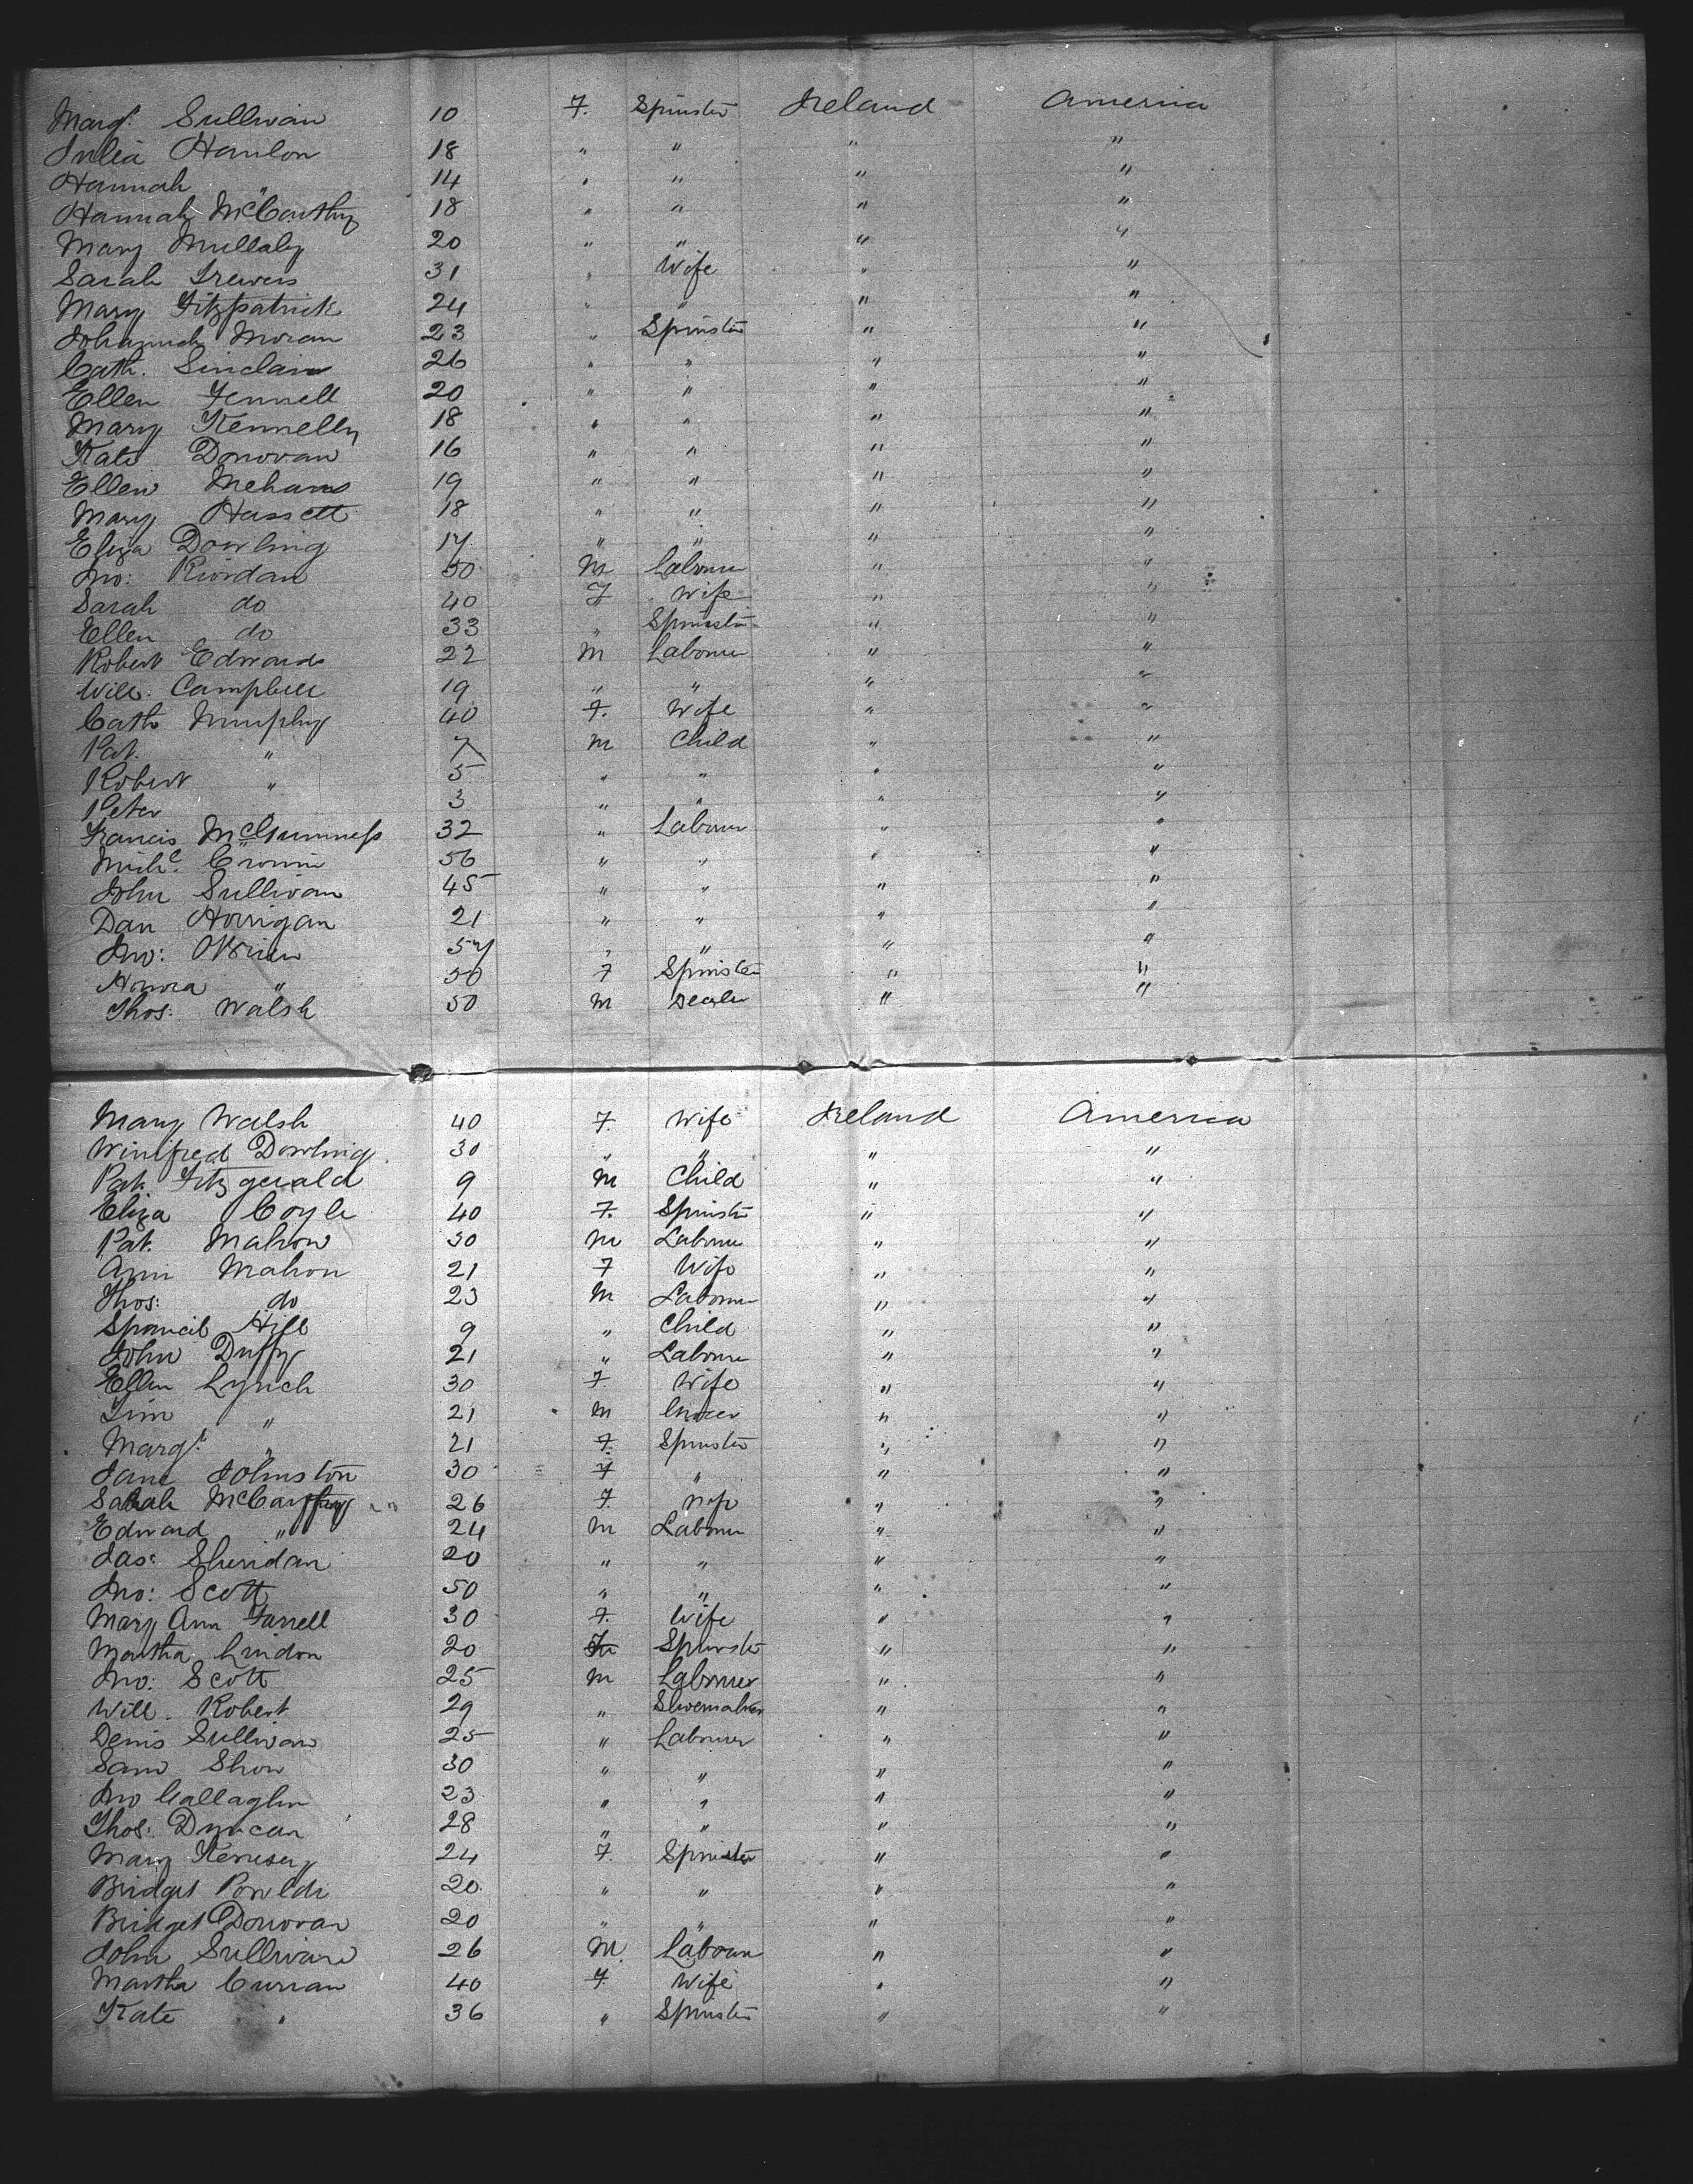 Margt. Sullivan 10 F. Spinster Ireland America
Julia Hanlon 18 " " " "
Hannah " 14 " " " "
Hannah McCarthy 18 " " " "
Mary Mullaly 20 " " " "
Sarah 31 " Wife " "
Mary Fitzpatrick 24 " " " "
Johannah Moran 23 " Spinster " "
Cath. Sinclair 26 " " " "
Ellen Fennell 20 " " " "
Mary Kennelly 18 " " " "
Kate Donovan 16 " " " "
Ellen Mehan 19 " " " "
Mary Hassett 18 " " " "
Eliza Dowling 17 " " " "
Jno: Riordan 50 M Labourer " "
Sarah do 40 F Wife " "
Ellen do 33 " Spinster " "
Robert Edwards 22 M Labourer " "
Will. Campbell 19 " " " "
Cath Murphy 40 F. Wife " "
Pat. " 7 M Child " "
Robert " 5 " " " "
Peter " 3 " " " "
Francis McGuinness 32 " Labourer " "
Michl. Cronin 56 " " " "
John Sullivan 45 " " " "
Dan Horrigan 21 " " " "
Jno: OBrien 57 " " " "
Honora " 50 F Spinster " "
Thos: Walsh 50 M Dealer " "
Mary Walsh 40 F. Wife Ireland America
Winifred Dowling 30 " " " "
Pat. Fitzgerald 9 M Child " "
Eliza Coyle 40 F. Spinster " "
Pat. Mahon 30 M Labourer " "
Ann Mahon 21 F Wife " "
Thos: do 23 M Labourer " "
Hill 9 " Child " "
John Duffy 21 " Labourer " "
Ellen Lynch 30 F. Wife " "
Tim " 21 M " "
Margt. " 21 F. Spinster " "
Jane Johnston 30 F " " "
Sarah McCaffrey 26 F. Wife " "
Edward " 24 M Labourer " "
Jas: Sheridan 20 " " " "
Jno: Scott 50 " " " "
Mary Ann Farrell 30 F. Wife " "
Martha Lindon 20 F Spinster " "
Jno: Scott 25 M Labourer " "
Will. Robert 29 " Shoemaker " "
Denis Sullivan 25 " Labourer " "
Sam Shon 30 " " " "
Jno Gallagher 23 " " " "
Thos: Duncan 28 " " " "
Mary 24 F. Spinster " "
Bridget 20 " " " "
Bridget Donovan 20 " " " "
John Sullivan 26 M. Labourer " "
Martha Curran 40 F. Wife " "
Kate " 36 " Spinster " "